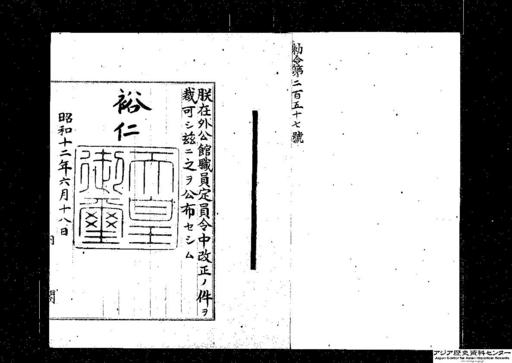 勅令第二百五十七號
朕在外公館職員定員令中改正ノ件ヲ
裁可シ茲ニ之ヲ公布セシム
裕仁
天皇
御璽
昭和十二年六月十八日
内閣
アジア歴史資料センター
Japan Center for Asian Historical Records